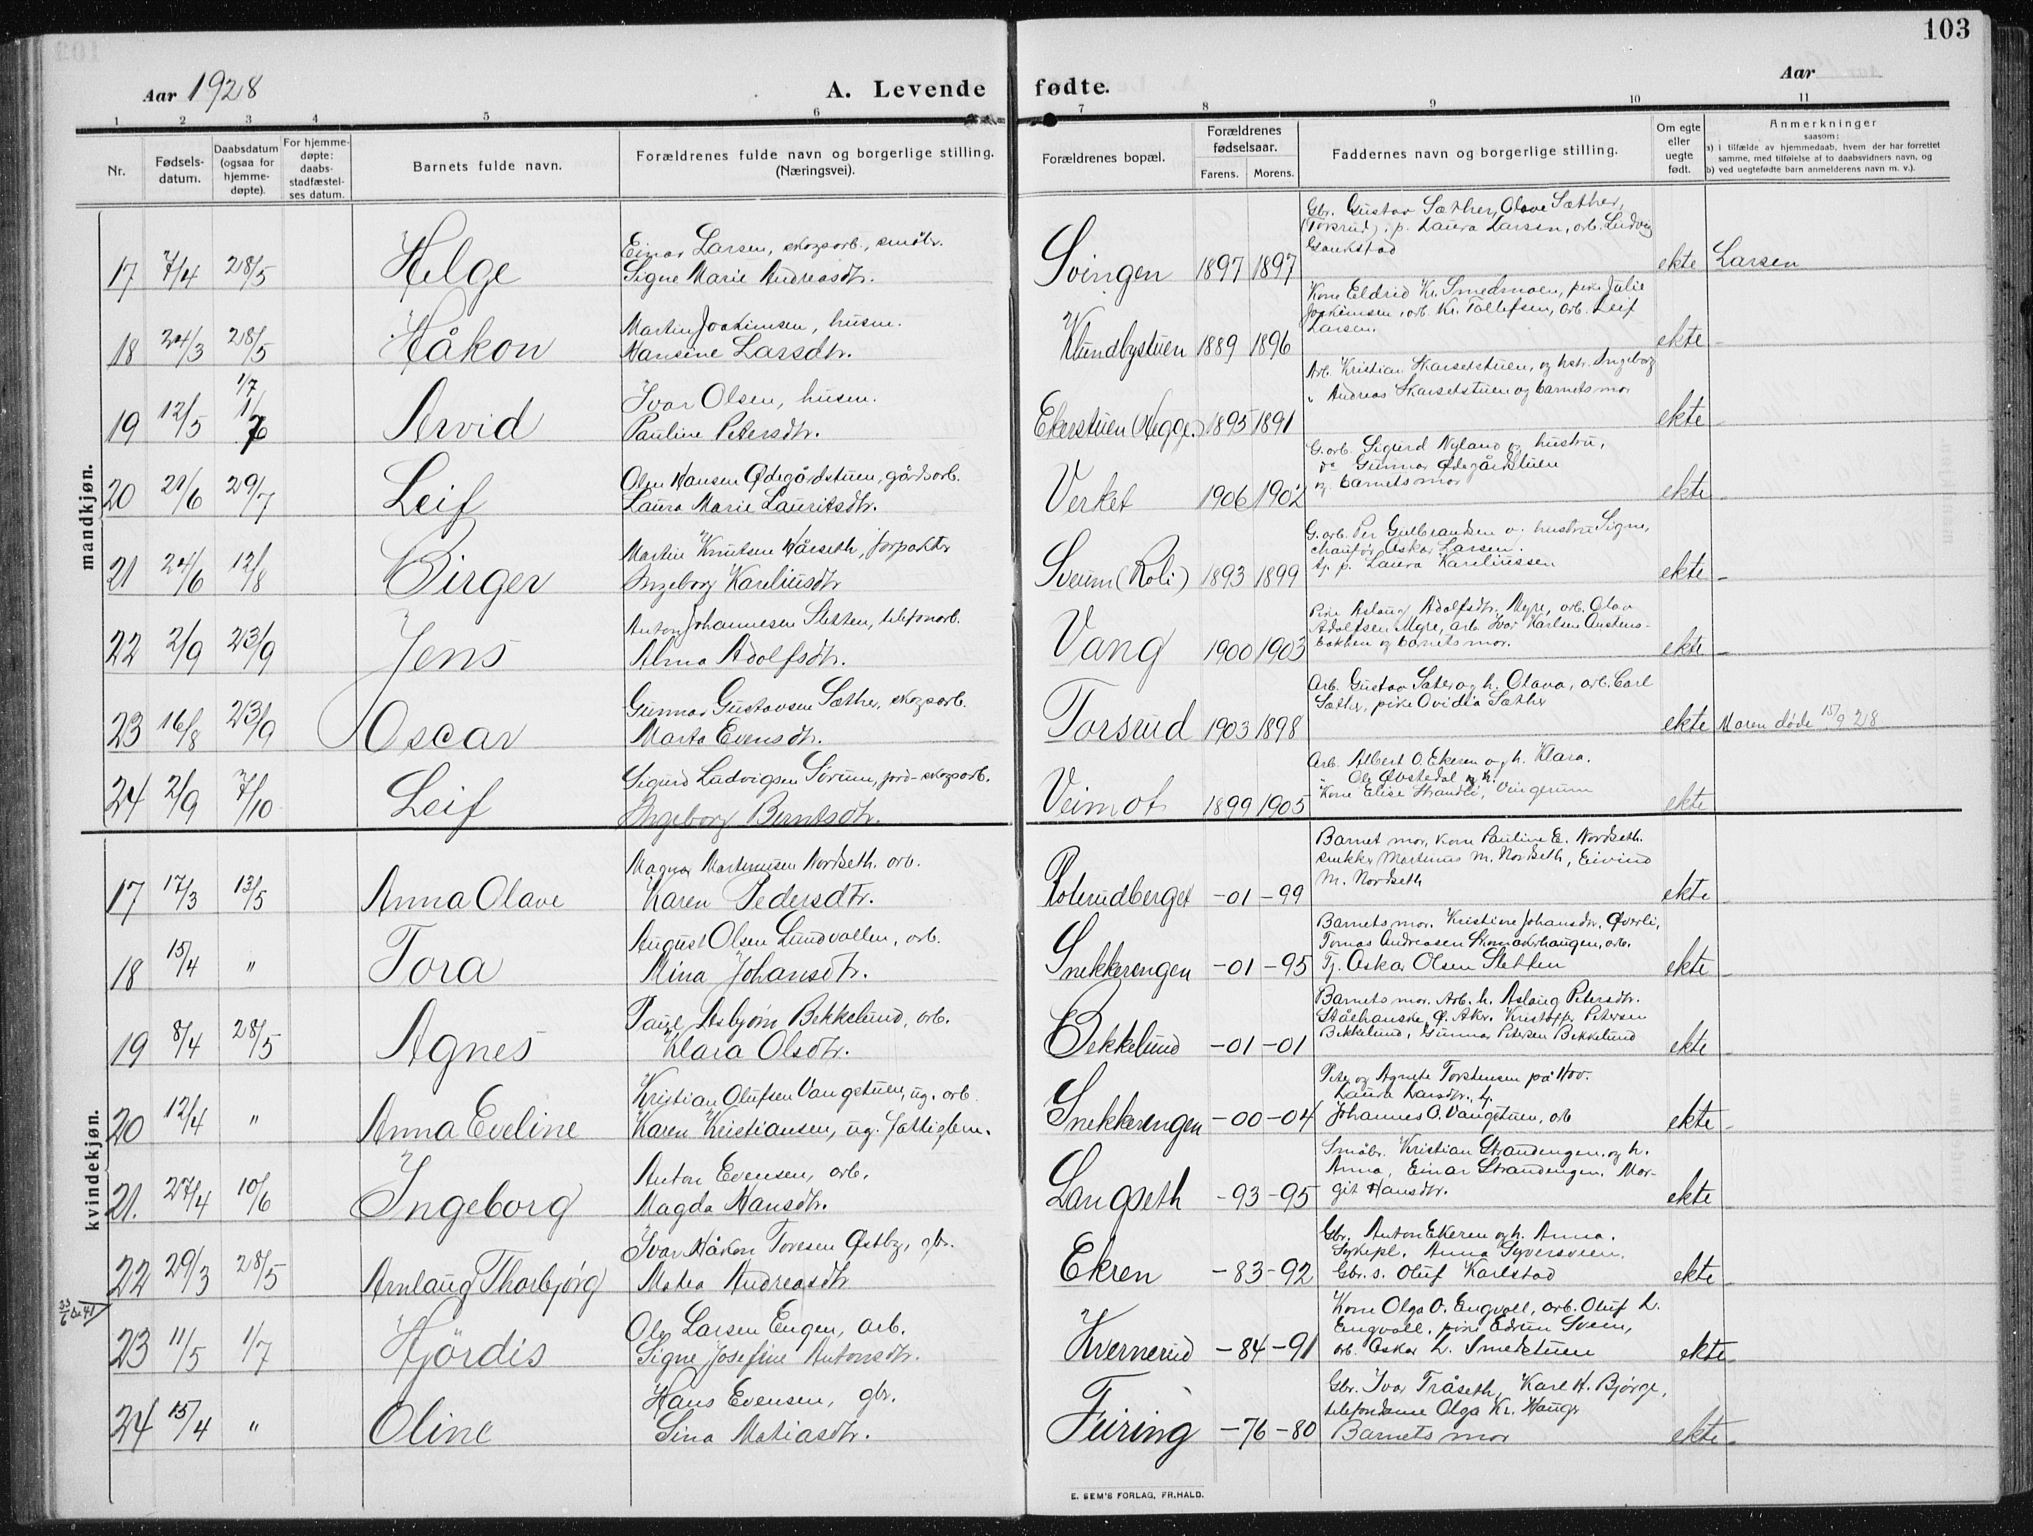 103
Aar 1928
A. Levende fødte.
Aar
1 2 3 4 5 6 7 8 9 10 11
Nr.
Fødsels-
datum.
Daabsdatum
(ogsaa for
hjemme-
døpte).
For hjemme-
døpte:
daabs-
stadfæstel-
ses datum.
Barnets fulde navn.
Forældrenes fulde navn og borgerlige stilling.
(Næringsvei).
Forældrenes bopæl.
Forældrenes
fødselsaar.
Farens. Morens.
Faddernes navn og borgerlige stilling.
Om egte
eller
uegte
født.
Anmerkninger
saasom:
a) i tilfælde av hjemmedaab, hvem der har forrettet
samme, med tilføielse af to daabsvidners navn, og
b) ved uegtefødte barn anmelderens navn m. v.).
mandkjøn.
Gbr. Gustav Sæther, Olave Sæther,
(Torsrud), p. Laura Larsen, arb. Ludvig
Einar Larsen, skogsarb., småbr.
17 7/4 28/5 Helge Signe Marie Andreasdtr. Svingen 1897 1897 ekte Larsen
Kone Eldrid Kr. Smedmoen, pike Julie
Martin Joakimsen, husm. Joakimsen, arb. Kr. Tollefsen, arb. Leif
Larsen.
18 24/3 28/5 Håkon Hansine Larsdtr. Klundbystuen 1889 1896 ekte -
1/7 Arb. Kristian Skarsetstuen, og hstr. Ingeborg
Ivar Olsen, husm. " Andreas Skarsetstuen og barnets mor
19 12/5 Arvid Pauline Petersdtr. Ekerstuen (Hegge.) 1895 1891 ekte -
G.arb. Sigurd Nyland og hustru,
Olen Hansen Ødegårdstuen, gårdsarb. do Gunnar Ødegårdstuen
20 21/6 29/7 Leif Laura Marie Lauritsdtr. Verket 1906 1902 og barnets mor ekte -
G.arb. Per Gulbrandsen o. hustru Signe,
Martin Knutsen Hårseth, forpakter chaufför Oskar Larsen.
21 24/6 12/8 Birger Ingeborg Kareliusdtr Sveum (Roli) 1893 1899 Tj. p. Laura Kareliussen ekte -
Anton Johannesen Sletten, telefonarb. Pike Aslaug Adolfsdtr. Myre, arb. Olav
Adolfsen Myre, arb. Ivar Karlsen Austens-
22 2/9 23/9 Jens Alma Adolfsdtr. Vang 1900 1903 bakken og barnets mor. ekte -
Gunnar Gustavsen Sæther, skogsarb. Arb. Gustav Sæter og h. Olava, arb. Carl
Sæther, pike Ovidia Sæther
23 16/8 23/9 Oscar Marta Evensdtr. Torsrud 1903 1898 ekte Moren døde 15/9 28
Sigurd Ludvigsen Sørum, jord-skogsarb. Arb. Albert O. Ekeren og h. Klara.
" Ole Øvstedal og h.
24 2/9 7/10 Leif Ingeborg Berntsdtr. Veimot 1899 1905 Kone Elise Strandli, Vingerum ekte
kvindekjøn.
Magnar Martinusen Nordseth. arb. Barnet mor, kone Pauline E. Nordseth.
snekker Martinus M. Nordseth, Eivind
17 17/3 13/5 Anna Olave Karen Pedersdtr. Roterudberget -01 -99 M. Nordseth ekte -
August Olsen Lundvollen, arb. Barnets mor. Kristine Johansdtr. Øverli,
Tomas Andreasen Skomakerhaugen, arb.
18 15/4 " Tora Mina Johansdtr. Snekkerengen -01 -95 Tj. Oskar Olsen Sletten ekte -
Paul Asbjørn Bekkelund, arb. Barnets mor. Arb. h. Aslaug Petersdtr.
Stålhanske Ø. Aker. Kristoffer Petersen
19 8/4 28/5 Agnes Klara Olsdtr. Bekkelund -01 -01 Bekkelund, Gunnar Petersen Bekkelund ekte -
Kristian Olufsen Vangstuen, ug. arb. Peter og Agnete Torstensen på Hov.
Laura Larsdtr. 4.
20 12/4 " Anna Eveline Karen Kristiansen, ug. fattiglem. Snekkerengen -00 -04 Johannes O. Vangstuen, arb ekte -
Anton Evensen, arb. Småbr. Kristian Strandengen og h.
Anna, Einar Strandengen. Mar-
21. 27/4 10/6 Ingeborg Magda Hansdtr. Langseth -93 -95 git Hansdtr. ekte
Ivar Håkon Toresen Østby, gbr. Gbr. Anton Ekeren og h. Anna.
Sykepl. Anna Syversveen.
22 29/3 28/5 Arnlaug Thorbjørg Matea Andreasdtr Ekren -83 -92 Gbr. s. Oluf Karlstad ekte -
Ole Larsen Engen, arb. Kone Olga O. Engvoll, arb. Oluf L.
Engvoll, pike Edrun Sveen,
23 11/5 1/7 Hjördis Signe Josefine Antonsdtr. Kvernerud -84 -91 arb. Oskar L. Smedstuen ekte -
Hans Evensen, gbr. Gbr. Ivar Tråseth, Karl H. Bjørge,
telefondame Olga Kr. Hauge
24 15/4 " Oline Sina Matiasdtr. Feiring -76 -80 Barnets mor ekte -
E. SEM'S FORLAG, FR.HALD.